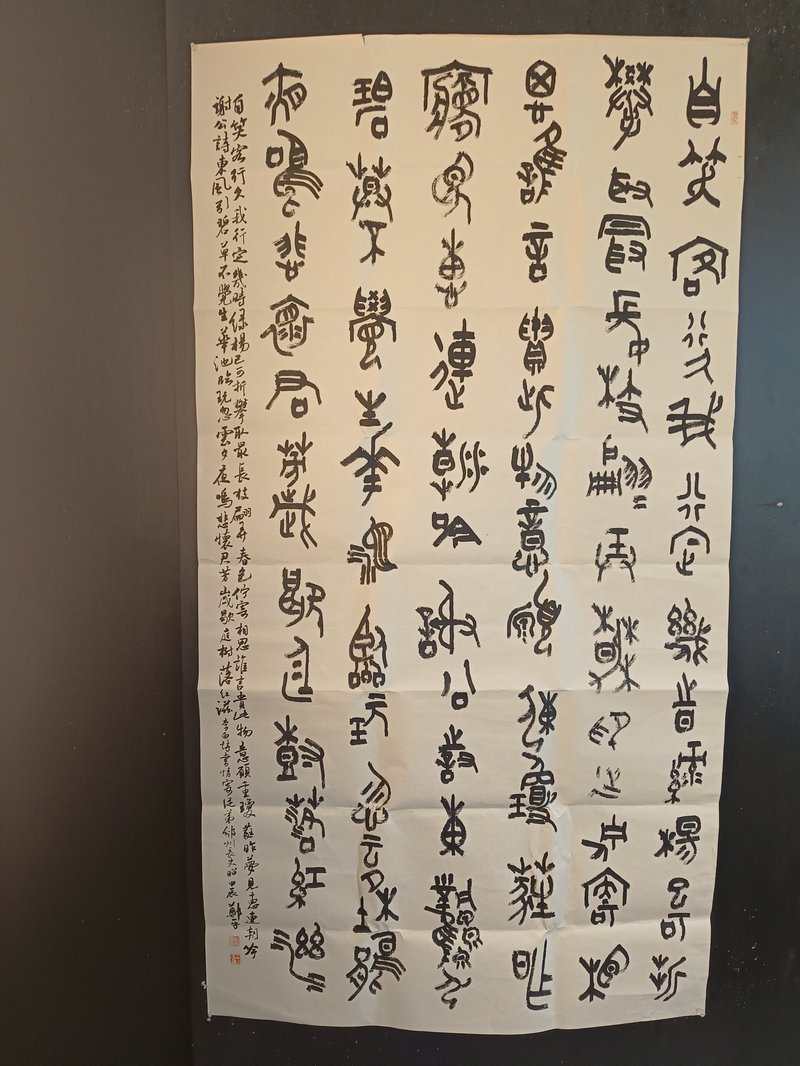 自笑客行久我行定幾時綠楊已可折
攀取最長枝翩〻弄春色延佇寄相
思誰言貴此物意願重瓊蕤昨
夢見惠連朝吟謝公詩東風引
碧草不覺生華池臨玩忽云夕杜鵑
夜鳴悲懷君芳歲歇庭樹落紅滋
自笑客行久我行定幾時綠楊已可折攀取最長枝翩弄春色佇寄相思誰言貴此物意願重瓊蕤昨夢見惠連朝吟
謝公詩東風引碧草不覺生華池臨玩忽雲夕夜鳴悲懷君芳歲歇庭樹落紅滋李白詩書情寄從弟邠州長史昭甲辰鄭